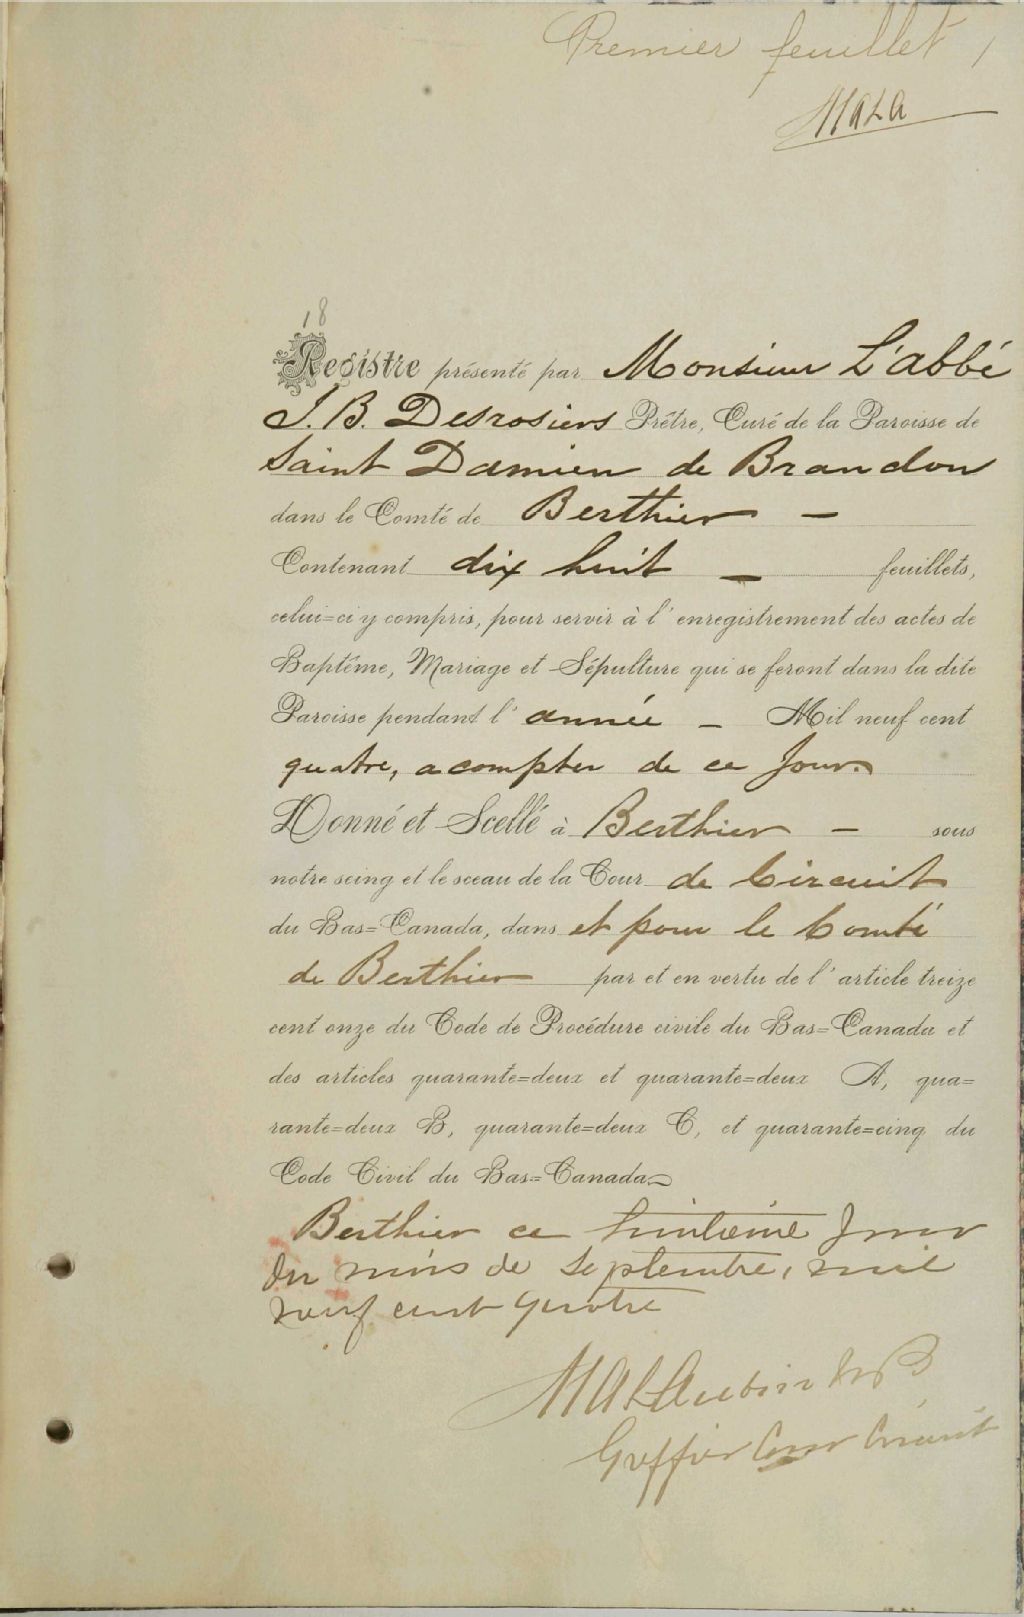 Premier feuillet 1
MALA
18
Registre présenté par Monsieur L'abbé
J. B. Desrosiers Prêtre, Curé de la Paroisse de
Saint Damien de Brandon
dans le Comté de Berthier —
Contenant dix huit — feuillets,
celui=ci y compris, pour servir à l'enregistrement des actes de
Baptême, Mariage et Sépulture qui se feront dans la dite
Paroisse pendant l'année — Mil neuf cent
quatre, a compter de ce Jour.
Donné et Scellé à Berthier — sous
notre seing et le sceau de la Cour de Circuit
du Bas=Canada, dans et pour le Comté
de Berthier par et en vertu de l'article treize
cent onze du Code de Procédure civile du Bas=Canada et
des articles quarante=deux et quarante=deux A, qua=
rante=deux B, quarante=deux C, et quarante=cinq du
Code Civil du Bas=Canada.
Berthier ce huitième Jour
du mois de Septembre, mil
neuf cent quatre
MALAubin
Greffier Cour Circuit